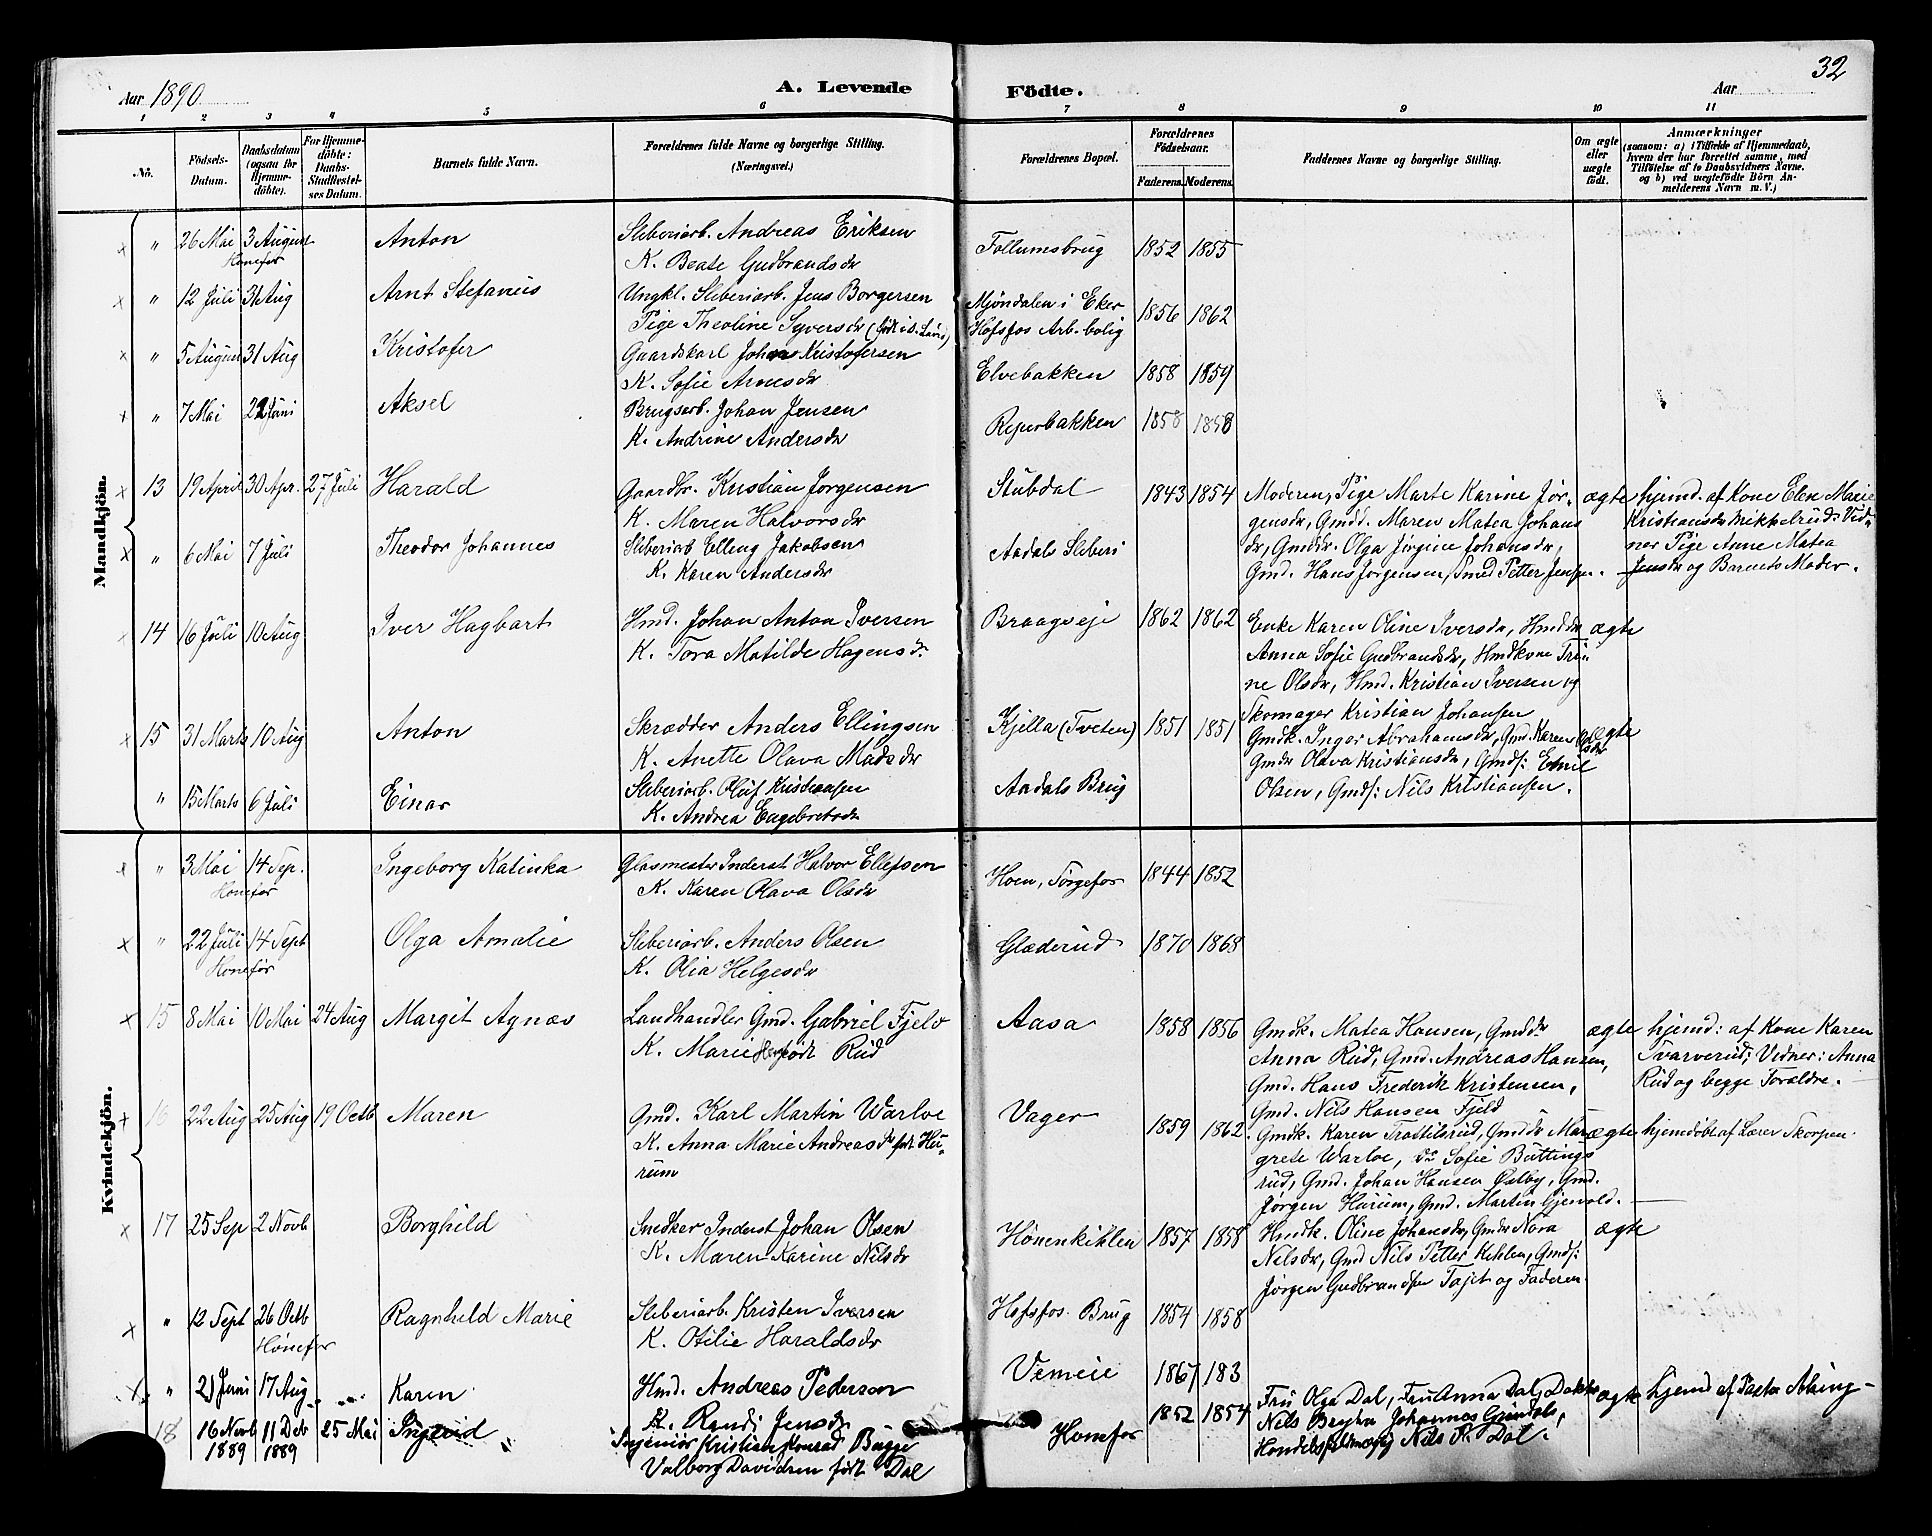 32
Aar 1890
A. Levende Födte.
Aar
1 2 3 4 5 6 7 8 9 10 11
No.
Födsels-Datum.
Daabsdatum (ogsaa for Hjemme-döbte).
For Hjemme-döbte: Daabs-Stadfæstel-ses Datum.
Barnets fulde Navn.
Forældrenes fulde Navne og borgerlige Stilling.
(Næringsvei.)
Forældrenes Bopæl.
Forældrenes Födselsaar.
Faderens. Moderens.
Faddernes Navne og borgerlige Stilling.
Om ægte eller uægte födt.
Anmærkninger
(saasom: a) i Tilfælde af Hjemmedaab, hvem der har forrettet samme, med Tilföielse af to Daabsvidners Navne. og b) ved uægtefödte Börn An-melderens Navn m. V.)
Mandkjön.
" 26 Mai 3 August Anton Sliberiarb. Andreas Eriksen Follumsbrug 1852 1855
Hønefos K. Beate Gudbrandsdr
" 12 Juli 31 Aug Arnt Stefanus Ungkl. Sliberiarb. Jens Borgersen Mjøndalen i Eker 1856 1862
Pige Theoline Syversdr Hofsfos Arb. bolig
" 5 August 31 Aug Kristofer Gaardskarl Johan Kristofersen Elvebakken 1858 1859
K. Sofie Arnesdr
" 7 Mai 22 Juni Aksel Brugsarb. Johan Jensen Reperbakken 1858 1858
K. Andrine Andersdr
13 19 April 30 Apr. 27 Juli Harald Gaardbr. Kristian Jørgensen Stubdal 1843 1854 Moderen, Pige Marte Karine Jør- ægte hjemd. af Kone Elen Marie
K. Maren Halvorsdr gensdr, Gmdd. Maren Matea Johans Kristiansdr Mikkelsrud. Vid-
" 6 Mai 7 Juli Theodor Johannes Sliberiarb Elling Jakobsen Aadals Sliberi dr, Gmddr. Olga Jørgine Johansdr, ner Pige Anne Matea
K. Karen Andersdr Gmd. Hans Jørgensen, Smed Petter Jensen. Jensdr og Barnets Moder.
14 16 Juli 10 Aug Iver Hagbart Hmd. Johan Anton Iversen Braagveje 1862 1862 Enke Karen Oline Iversdr, Hmddr ægte
K. Tora Matilde Hagensdr. Anna Sofie Gudbrandsdr, Hmdkone Tri-
ne Olsdr, Hmd. Kristian Iversen og
Skomager Kristian Johansen
15 31 Marts 10 Aug Anton Skrædder Anders Ellingsen Kjella (Tveten) 1851 1851 Gmdk. Inger Abrahamsdr, Gmd. Karen Olsdr ægte
K. Anette Olava Madsdr Gmdr Olava Kristiansdr, Gmds: Emil
" 15 Marts 6 Juli Einar Sliberiarb. Oluf Kristiansen Aadals Brug Olsen, Gmds: Nils Kristiansen.
K. Andrea Engebretsdr
Kvindekjön.
" 3 Mai 14 Sep. Ingeborg Katinka Glasmester Inderst Halvor Ellefsen Hoen, Jørgefos 1844 1852
Hønefos K. Karen Olava Olsdr
" 22 Juli 14 Sept Olga Amalie Sliberiarb. Anders Olsen Glæderud 1870 1868
Hønefos K. Olia Helgesdr
15 8 Mai 10 Mai 24 Aug Margit Agnæs Landhandler Gmd. Gabriel Fjeld Aasa 1858 1856 Gmdk. Matea Hansen, Gmddr ægte hjemd: af Kone Karen
K. Marie født Rud Anna Rud, Gmd. Andreas Hansen, Tvarverud; Vidner: Anna
Gmd. Hans Frederik Kristensen, Rud og begge Forældre.
Gmd. Nils Hansen Fjeld
16 22 Aug 25 Aug 19 Octb Maren Gmd. Karl Martin Warloe Vager 1859 1862 Gmdk. Karen Trostilsrud, Gmddr Mar- ægte hjemdøbt af Lærer Skorpen.
K. Anna Marie Andreasdr født Hu- grete Warloe, do Sofie Buttings
rum rud, Gmd. Johan Hansen Østby, Gmd.
Jørgen Hurum, Gmd. Martin Gjenvold.
17 25 Sep 2 Novb Borghild Snedker Inderst Johan Olsen Hønenkihlen 1857 1858 Hmdk. Oline Johansdr, Gmdr Nora ægte
K. Maren Karine Nilsdr Nilsdr, Gmd Nils Petter Kihlen, Gmds:
Jørgen Gudbrandsen Tajet og Faderen.
" 12 Sept 26 Octb Ragnhild Marie Sliberiarb. Kristen Iversen Hofsfos Brug 1854 1858
Hønefos K. Otilie Haraldsdr
" 21 Juni 17 Aug Karen Hmd. Andreas Pederson Vemeie 1867 183
K. Randi Jensdr
18 16 Novb 1889 11 Deb 1889 25 Mai Ingerid Ingeniør Kristian Konrad Bugge Hønefos 1852 1854 Fru Olga Dal, Fru Anna Dal, Doktor ægte hjemd af Pastor
Valborg Davidren født Dal Nils Johannes
Nils R. Dal.